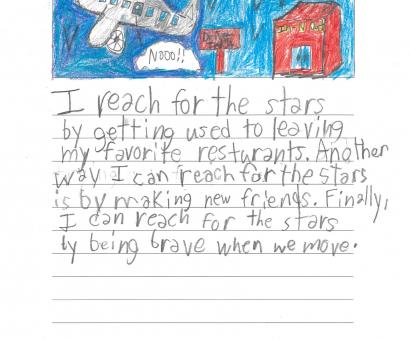 Nooo!!
I reach for the stars
by getting used to leaving
my favorite resturants. Another
way I can reach for the stars
is by making new friends. Finally,
I can reach for the stars
by being brave when we move.